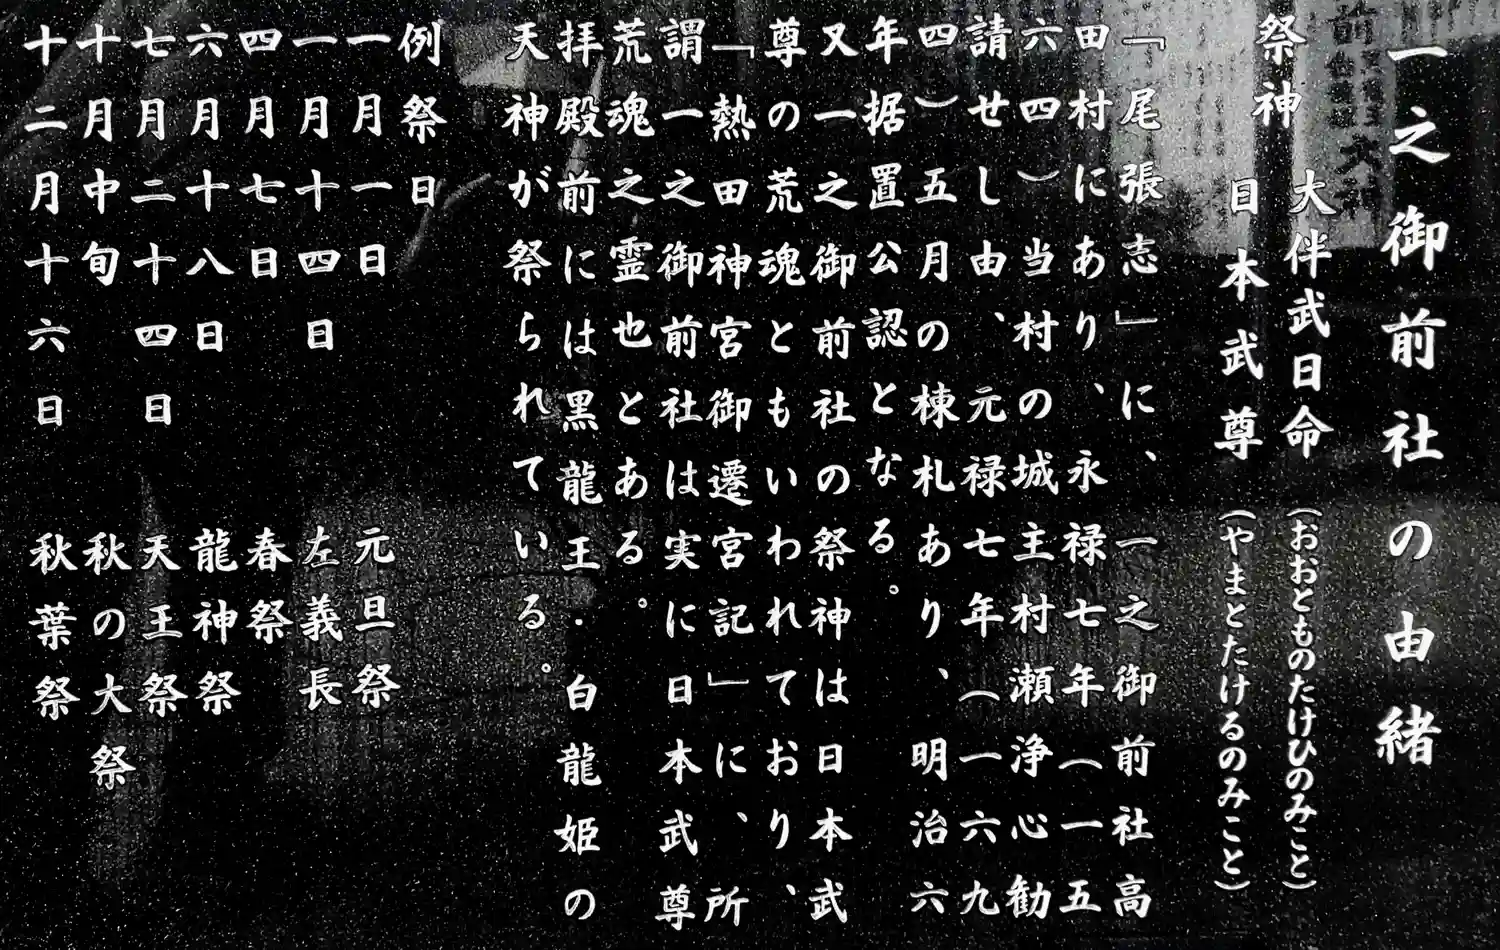 一之御前社の由緒
祭神　大伴武日命（おおとものたけひのみこと）
日本武尊（やまとたけるのみこと）
『尾張志」に、一之御前社高
田村にあり、永禄七年（一五
六四）当村の城主村瀬浄心勧
請せし由、元禄七年（一六九
四）五月の棟札あり、明治六
年据置公認となる。
又一之御前社の祭神は日本武
尊の荒魂ともいわれており、
「熱田神宮御遷宮記」に、所
謂一之御前社は実に日本武尊
荒魂之霊也とある。
拝殿前には黒龍王・白龍姫の
天神が祭られている。
例祭日
一月一日　元旦祭
一月十四日　左義長
四月七日　春祭
六月十八日　龍神祭
七月二十四日　天王祭
十月中旬　秋の大祭
十二月十六日　秋葉祭